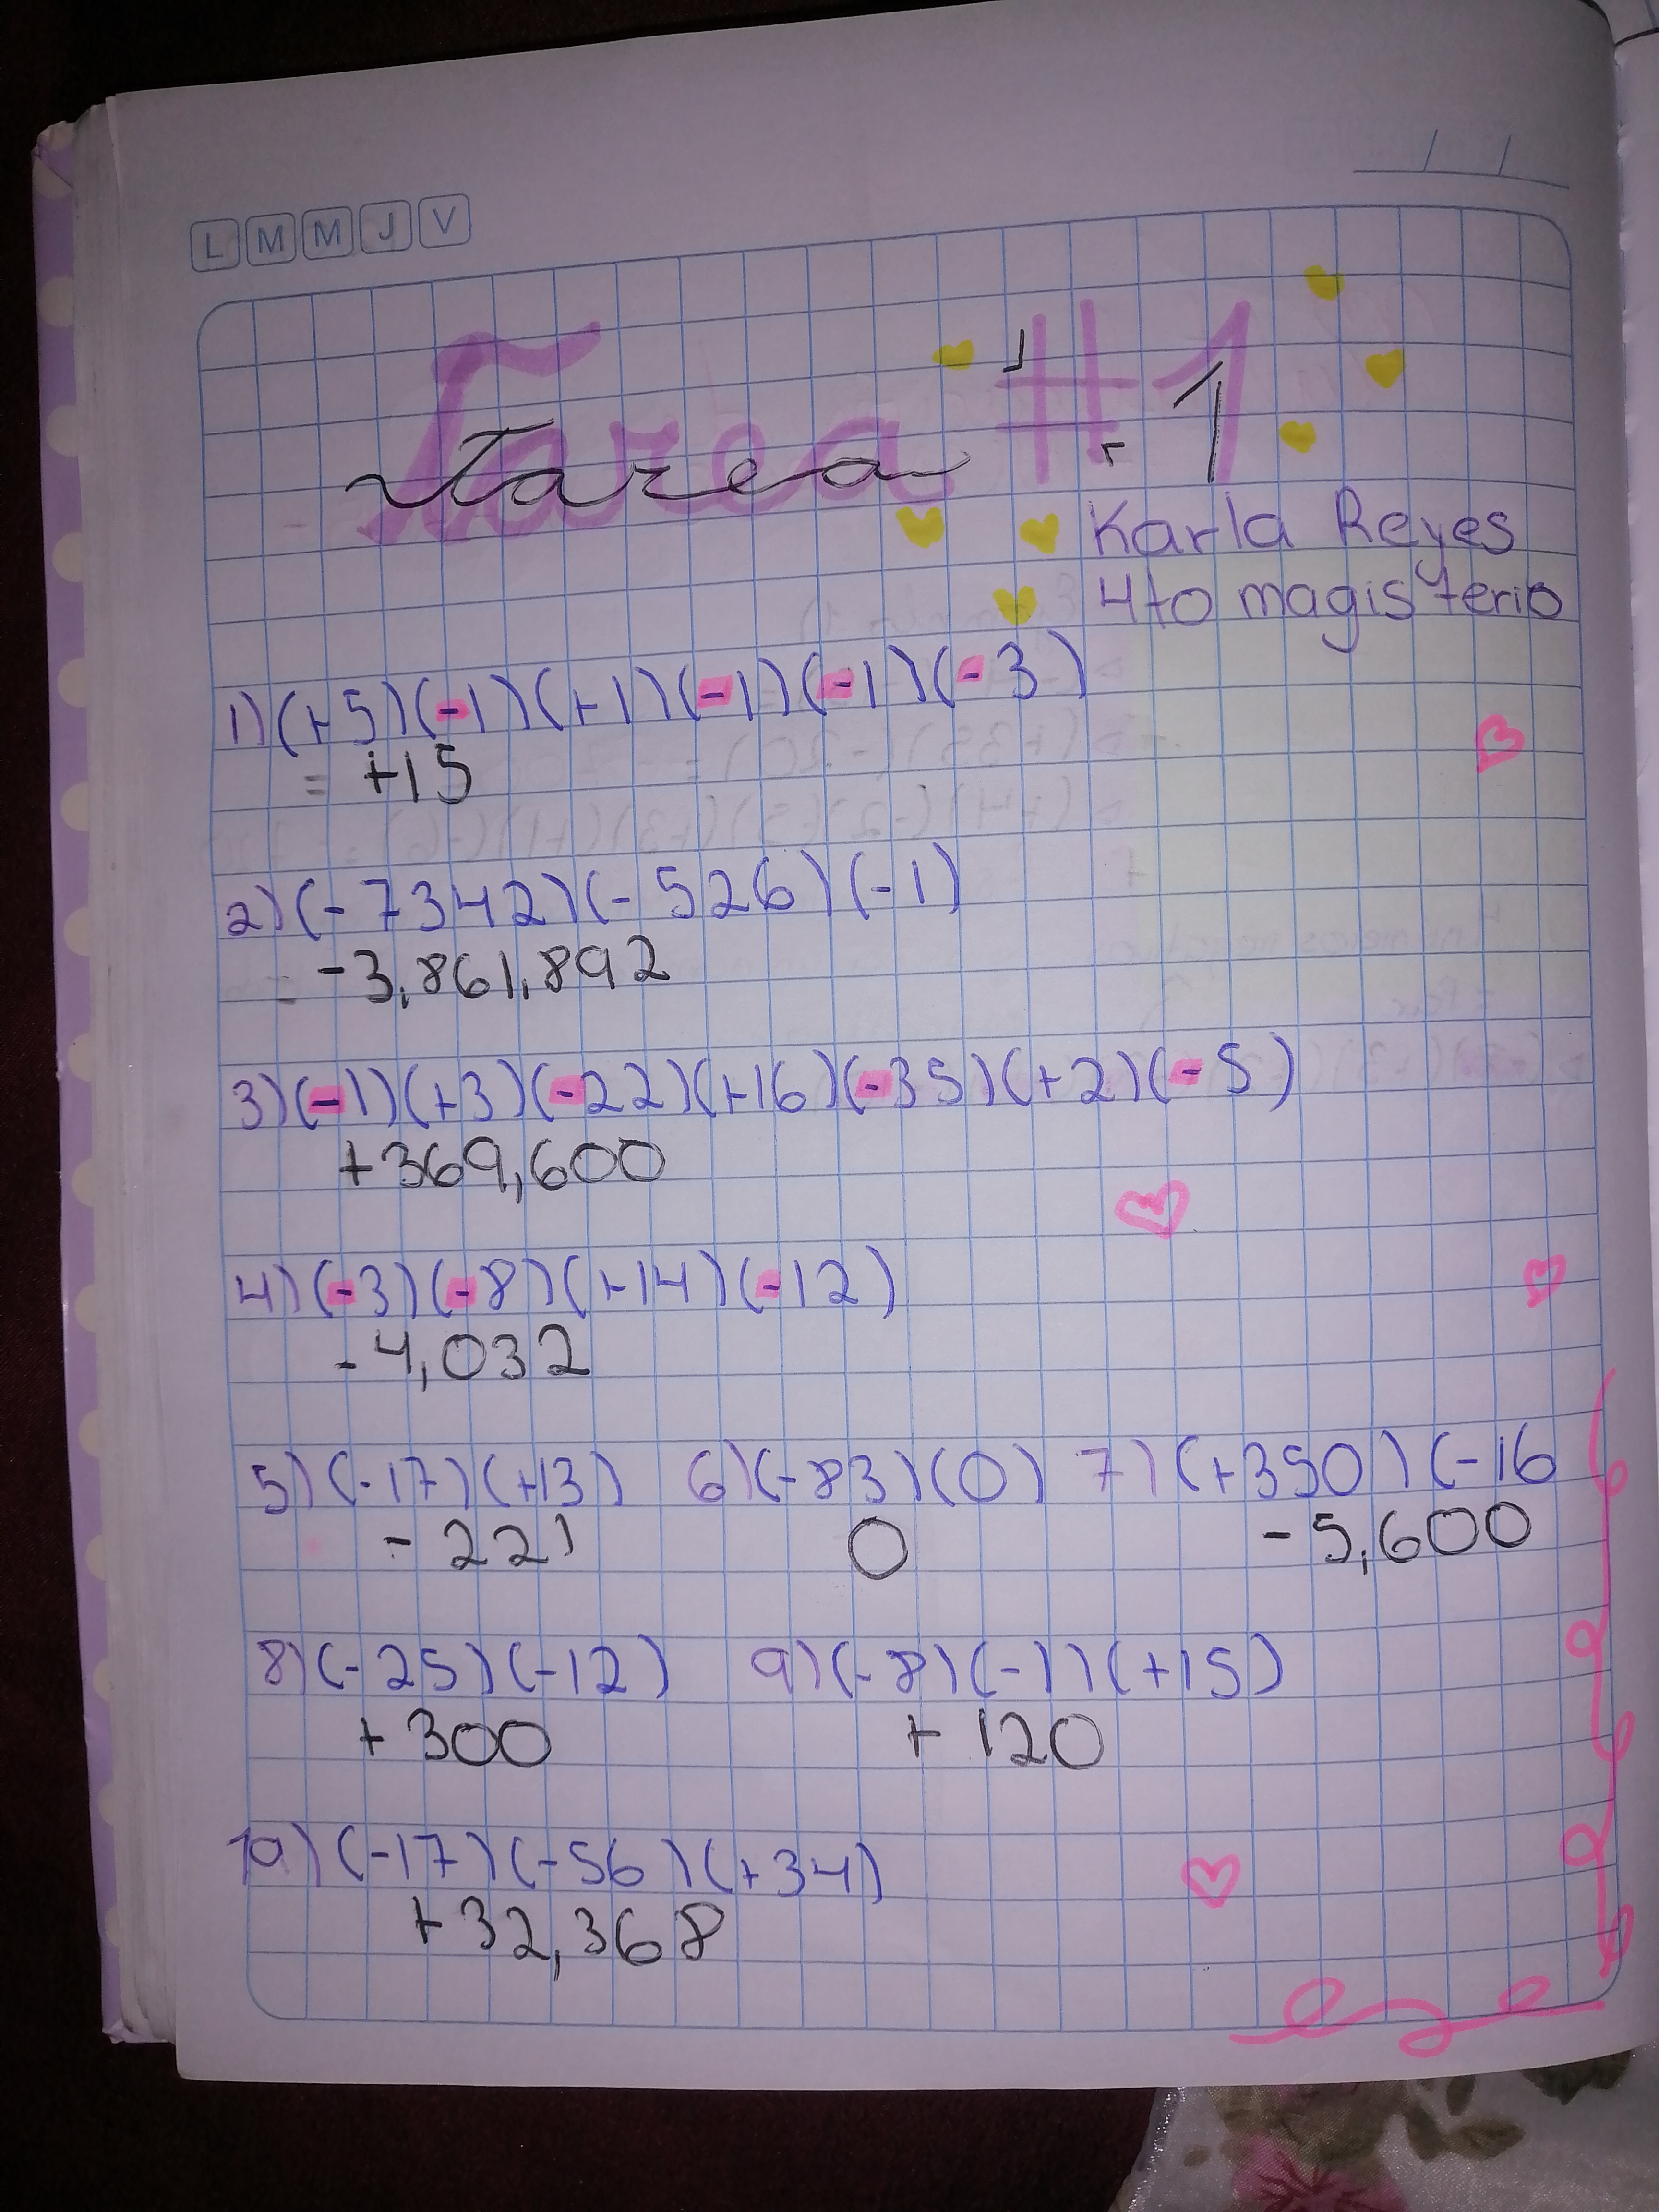 L M M J V
Tarea #1
Karla Reyes
4to magisterio
1) (+5)(-1)(+1)(-1)(-1)(-3)
= +15
2) (-7342)(-526)(-1)
= -3,861,892
3) (-1)(+3)(-22)(+16)(-35)(+2)(-5)
+369,600
4) (-3)(-8)(+14)(-12)
-4,032
5) (-17)(+13) 6) (-83)(0) 7) (+350)(-16
-221 0 -5,600
8) (-25)(-12) 9) (-8)(-1)(+15)
+300 +120
10) (-17)(-56)(+34)
+32,368